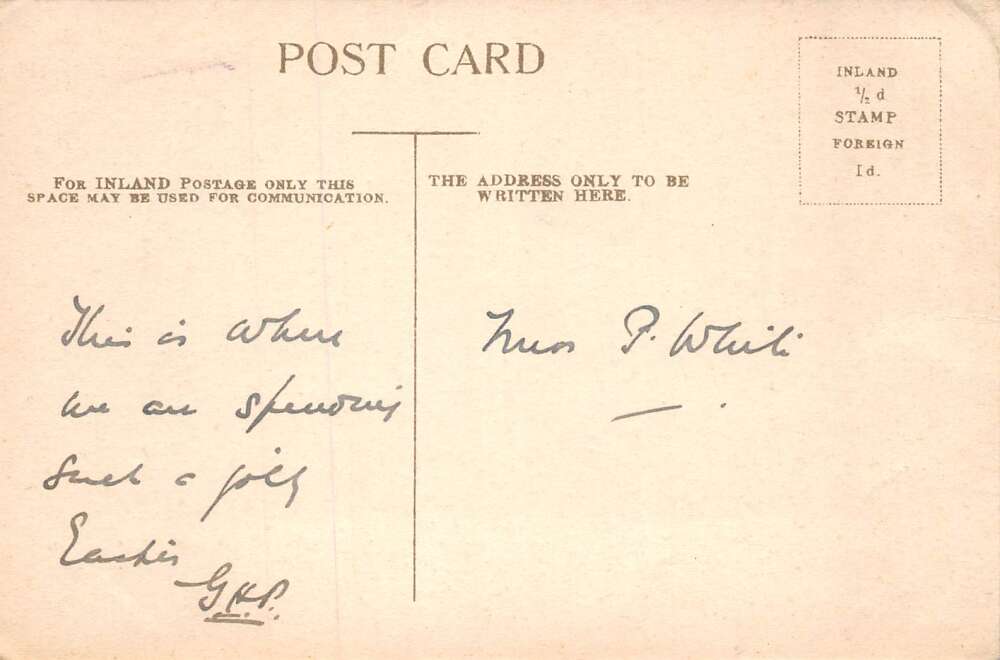 POST CARD
INLAND
½ d
STAMP
FOREIGN
1d.
FOR INLAND POSTAGE ONLY THIS
SPACE MAY BE USED FOR COMMUNICATION.
THE ADDRESS ONLY TO BE
WRITTEN HERE.
This is where
we are spending
such a jolly
Easter
G.H.P.
Miss P. White